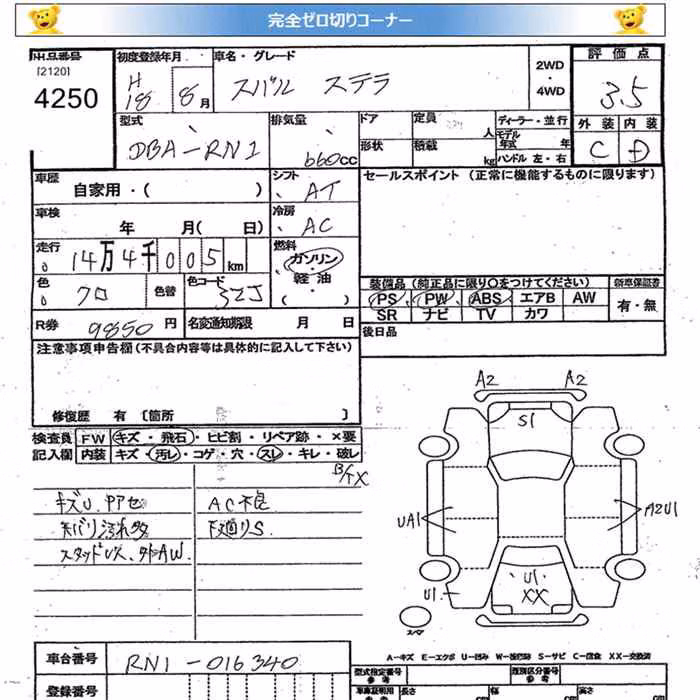 完全ゼロ切りコーナー
出品番号 初度登録年月 車名・グレード 2WD・4WD 評価点
[2120]
4250
H18 8月 スバル ステラ 3.5
外装 内装
C D
型式 排気量 ドア 定員 人 ディーラー・並行
DBA-RN1 660cc 形状 積載 kg モデル年式 年
ハンドル 左・右
車歴 自家用・( ) シフト AT セールスポイント (正常に機能するものに限ります)
車検 年 月( 日) 冷房 AC
走行 14万4千005km 燃料 ガソリン・軽油・( )
色 クロ 色替 色コード 32J
装備品 (純正品に限り○をつけてください) 新車保証書
PS PW ABS エアB AW 有・無
SR ナビ TV カワ
R券 9850円 名変通知期限 月 日 後日品
注意事項申告欄(不具合内容等は具体的に記入して下さい)
修復歴 有 [箇所 ]
検査員記入欄 FW キズ・飛石・ヒビ割・リペア跡・×要
内装 キズ・汚レ・コゲ・穴・スレ・キレ・破レ
キズU. AC不良
下廻りS.
A2 A2
S1
UA1 A2U1
U1
U1
XX
スペア
A-キズ E-エクボ U-凹み W-補修跡 S-サビ C-腐食 XX-交換済
車台番号 RN1-016340
登録番号
型式指定番号 参考 類別区分番号 参考
長さ cm 幅 cm 高さ cm